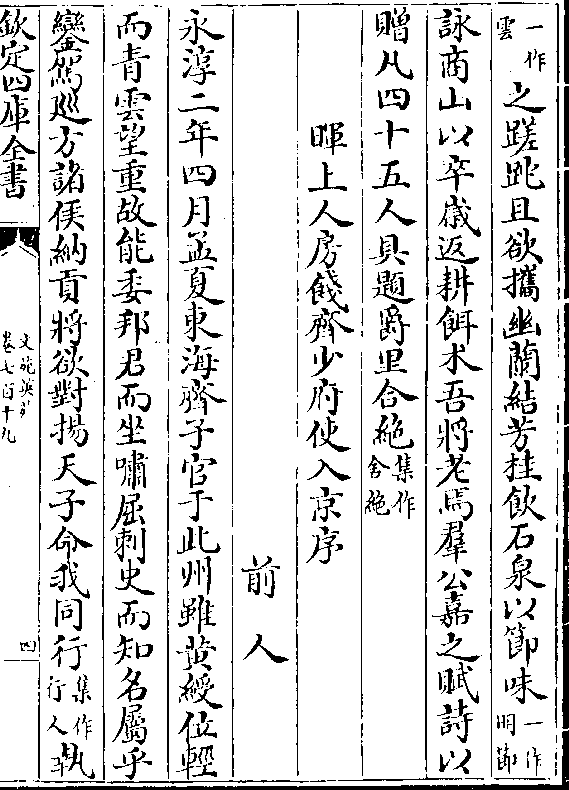 一作雲之蹉跎且欲攜幽蘭結芳桂飲石泉以節味一作明節
詠商山以卒嵗返耕餌术吾將老焉羣公嘉之賦詩以
贈凡四十五人具題爵里合絶集作舍絶
暉上人房餞齊少府使入京序
前人
永淳二年四月孟夏東海齊子官于此州雖黄綬位輕
而青雲望重故能委邦君而坐嘯屈刺史而知名屬乎
鑾駕廵方諸侯納貢將欲對揚天子命我同行集作行人執
欽定四庫全書
文苑英華
卷七百十九
四